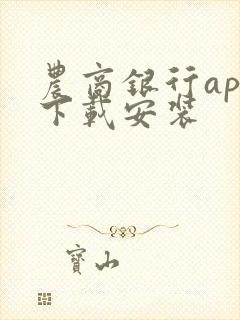 農商銀行ap
下載安裝
寶山